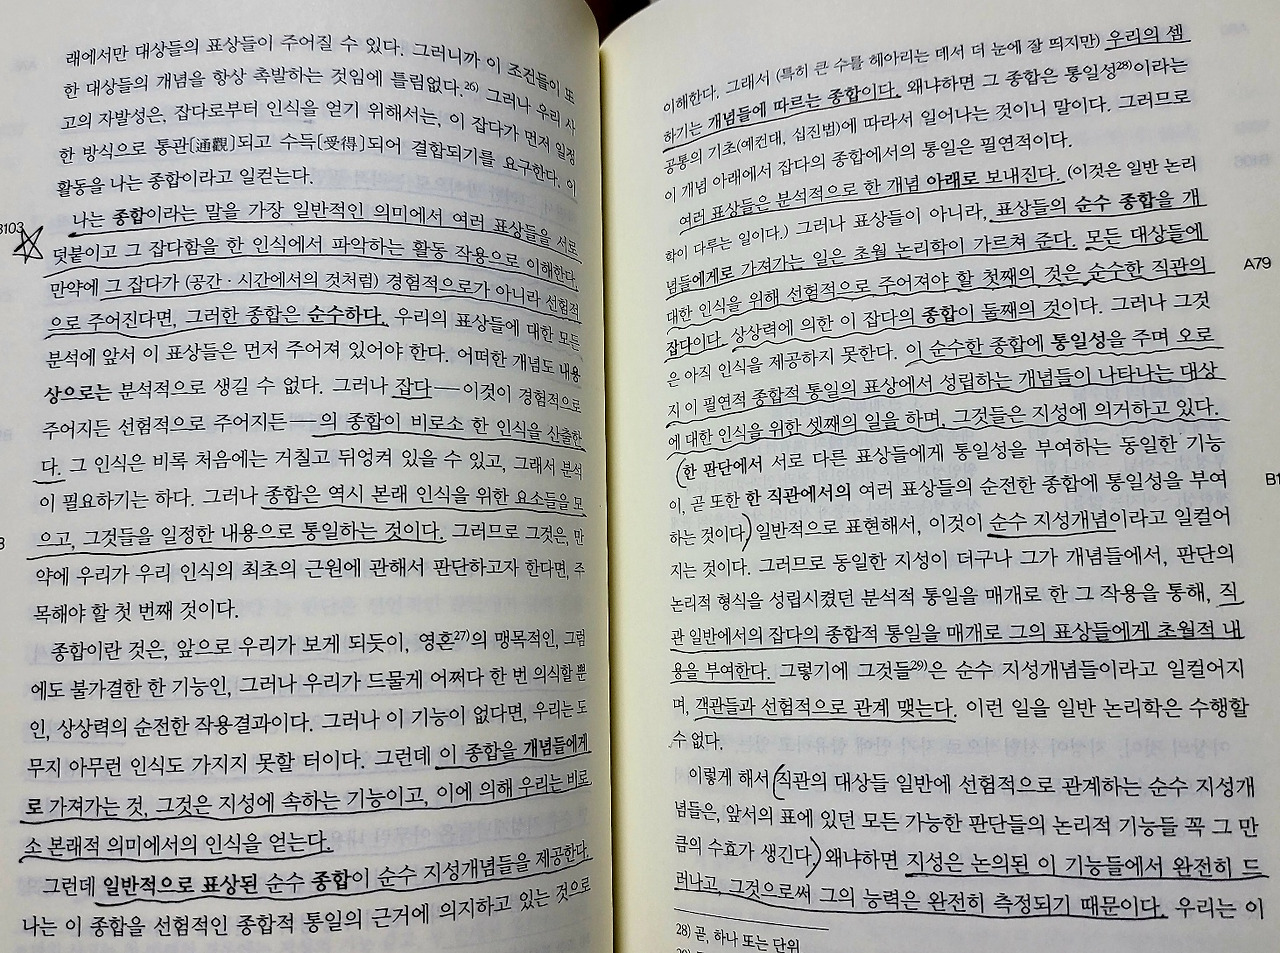 래에서만 대상들의 표상들이 주어질 수 있다. 그러니까 이 조건들이 또
한 대상들의 개념을 항상 촉발하는 것임에 틀림없다.26) 그러나 우리 사
고의 자발성은, 잡다로부터 인식을 얻기 위해서는, 이 잡다가 먼저 일정
한 방식으로 통관[通觀]되고 수득[受得]되어 결합되기를 요구한다. 이
활동을 나는 종합이라고 일컫는다.
B103
나는 종합이라는 말을 가장 일반적인 의미에서 여러 표상들을 서로
덧붙이고 그 잡다함을 한 인식에서 파악하는 활동 작용으로 이해한다.
만약에 그 잡다가 (공간·시간에서의 것처럼) 경험적으로가 아니라 선험적
으로 주어진다면, 그러한 종합은 순수하다. 우리의 표상들에 대한 모든
분석에 앞서 이 표상들은 먼저 주어져 있어야 한다. 어떠한 개념도 내용
상으로는 분석적으로 생길 수 없다. 그러나 잡다——이것이 경험적으로
주어지든 선험적으로 주어지든——의 종합이 비로소 한 인식을 산출한
다. 그 인식은 비록 처음에는 거칠고 뒤엉켜 있을 수 있고, 그래서 분석
이 필요하기는 하다. 그러나 종합은 역시 본래 인식을 위한 요소들을 모
으고, 그것들을 일정한 내용으로 통일하는 것이다. 그러므로 그것은, 만
약에 우리가 우리 인식의 최초의 근원에 관해서 판단하고자 한다면, 주
목해야 할 첫 번째 것이다.
종합이란 것은, 앞으로 우리가 보게 되듯이, 영혼27)의 맹목적인, 그럼
에도 불가결한 한 기능인, 그러나 우리가 드물게 어쩌다 한 번 의식할 뿐
인, 상상력의 순전한 작용결과이다. 그러나 이 기능이 없다면, 우리는 도
무지 아무런 인식도 가지지 못할 터이다. 그런데 이 종합을 개념들에게
로 가져가는 것, 그것은 지성에 속하는 기능이고, 이에 의해 우리는 비로
소 본래적 의미에서의 인식을 얻는다.
그런데 일반적으로 표상된 순수 종합이 순수 지성개념들을 제공한다.
나는 이 종합을 선험적인 종합적 통일의 근거에 의지하고 있는 것으로
이해한다. 그래서 (특히 큰 수를 헤아리는 데서 더 눈에 잘 띄지만) 우리의 셈
하기는 개념들에 따르는 종합이다. 왜냐하면 그 종합은 통일성28)이라는
공통의 기초(예컨대, 십진법)에 따라서 일어나는 것이니 말이다. 그러므로
이 개념 아래에서 잡다의 종합에서의 통일은 필연적이다.
여러 표상들은 분석적으로 한 개념 아래로 보내진다. (이것은 일반 논리
학이 다루는 일이다.) 그러나 표상들이 아니라, 표상들의 순수 종합을 개
념들에게로 가져가는 일은 초월 논리학이 가르쳐 준다. 모든 대상들에
A79
대한 인식을 위해 선험적으로 주어져야 할 첫째의 것은 순수한 직관의
잡다이다. 상상력에 의한 이 잡다의 종합이 둘째의 것이다. 그러나 그것
은 아직 인식을 제공하지 못한다. 이 순수한 종합에 통일성을 주며 오로
지 이 필연적 종합적 통일의 표상에서 성립하는 개념들이 나타나는 대상
에 대한 인식을 위한 셋째의 일을 하며, 그것들은 지성에 의거하고 있다.
(한 판단에서 서로 다른 표상들에게 통일성을 부여하는 동일한 기능
이, 곧 또한 한 직관에서의 여러 표상들의 순전한 종합에 통일성을 부여
하는 것이다) 일반적으로 표현해서, 이것이 순수 지성개념이라고 일컬어
지는 것이다. 그러므로 동일한 지성이 더구나 그가 개념들에서, 판단의
논리적 형식을 성립시켰던 분석적 통일을 매개로 한 그 작용을 통해, 직
관 일반에서의 잡다의 종합적 통일을 매개로 그의 표상들에게 초월적 내
용을 부여한다. 그렇기에 그것들29)은 순수 지성개념들이라고 일컬어지
며, 객관들과 선험적으로 관계 맺는다. 이런 일을 일반 논리학은 수행할
수 없다.
이렇게 해서 (직관의 대상들 일반에 선험적으로 관계하는 순수 지성개
념들은, 앞서의 표에 있던 모든 가능한 판단들의 논리적 기능들 꼭 그 만
큼의 수효가 생긴다.) 왜냐하면 지성은 논의된 이 기능들에서 완전히 드
러나고, 그것으로써 그의 능력은 완전히 측정되기 때문이다. 우리는 이
28) 곧, 하나 또는 단위